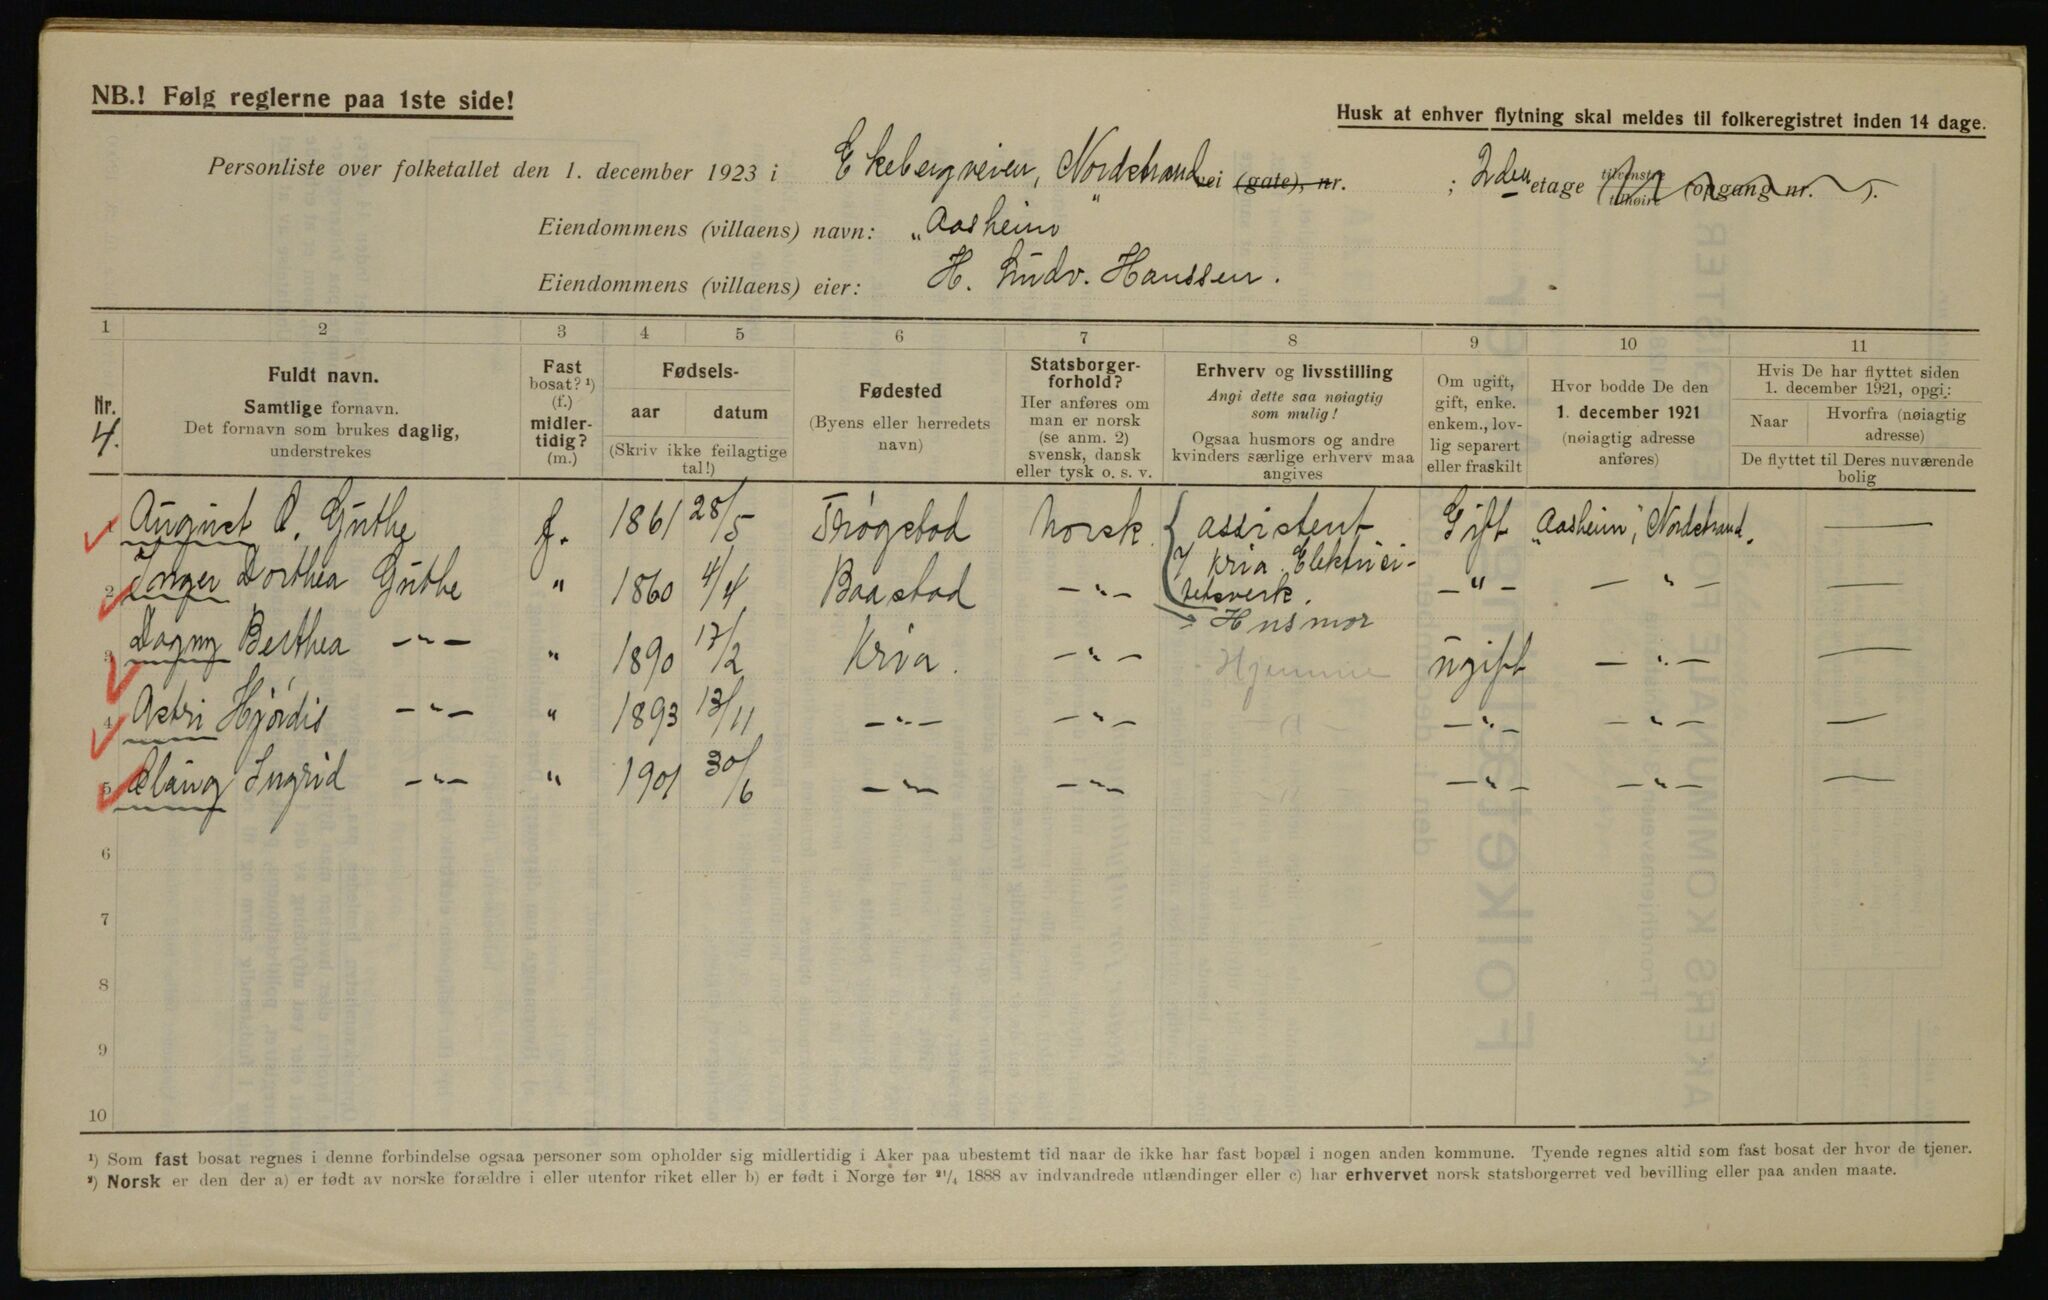 NB.! Følg reglerne paa 1ste side!
Husk at enhver flytning skal meldes til folkeregistret inden 14 dage.
Personliste over folketallet den 1. december 1923 i Ekebergveien, Nordstrand vei (gate), nr. ; 2den etage tilvenstre tilhøire (opgang nr. ).
Eiendommens (villaens) navn: „Aasheim"
Eiendommens (villaens) eier: H. Ludv. Hanssen.
1 2 3 4 5 6 7 8 9 10 11
Nr. 4.
Fuldt navn.
Samtlige fornavn.
Det fornavn som brukes daglig,
understrekes
Fast
bosat? ¹)
(f.)
midler-
tidig?
(m.)
Fødsels-
aar datum
(Skriv ikke feilagtige
tal!)
Fødested
(Byens eller herredets
navn)
Statsborger-
forhold?
Her anføres om
man er norsk
(se anm. 2)
svensk, dansk
eller tysk o. s. v.
Erhverv og livsstilling
Angi dette saa nøiagtig
som mulig!
Ogsaa husmors og andre
kvinders særlige erhverv maa
angives
Om ugift,
gift, enke.
enkem., lov-
lig separert
eller fraskilt
Hvor bodde De den
1. december 1921
(nøiagtig adresse
anføres)
Hvis De har flyttet siden
1. december 1921, opgi:
Naar Hvorfra (nøiagtig
adresse)
De flyttet til Deres nuværende
bolig
1 August O. Guthe f. 1861 28/5 Trøgstad Norsk { assistent Gift „Aasheim", Nordstrand. —
v/ Kria. Elektrici-
tetsverk.
2 Inger Dorthea Guthe " 1860 4/4 Baastad —"— Husmor —"— —"— —
3 Dagny Berthea —"— " 1890 17/2 Kria. —"— Hjemme ugift —"— —
4 Astri Hjørdis —"— " 1893 13/11 —"— —"— —"— —"— —
5 Ingrid —"— " 1901 30/6 —"— —"— —"— —"— —
6
7
8
9
10
¹) Som fast bosat regnes i denne forbindelse ogsaa personer som opholder sig midlertidig i Aker paa ubestemt tid naar de ikke har fast bopæl i nogen anden kommune. Tyende regnes altid som fast bosat der hvor de tjener.
²) Norsk er den der a) er født av norske forældre i eller utenfor riket eller b) er født i Norge før ²¹/₄ 1888 av indvandrede utlændinger eller c) har erhvervet norsk statsborgerret ved bevilling eller paa anden maate.